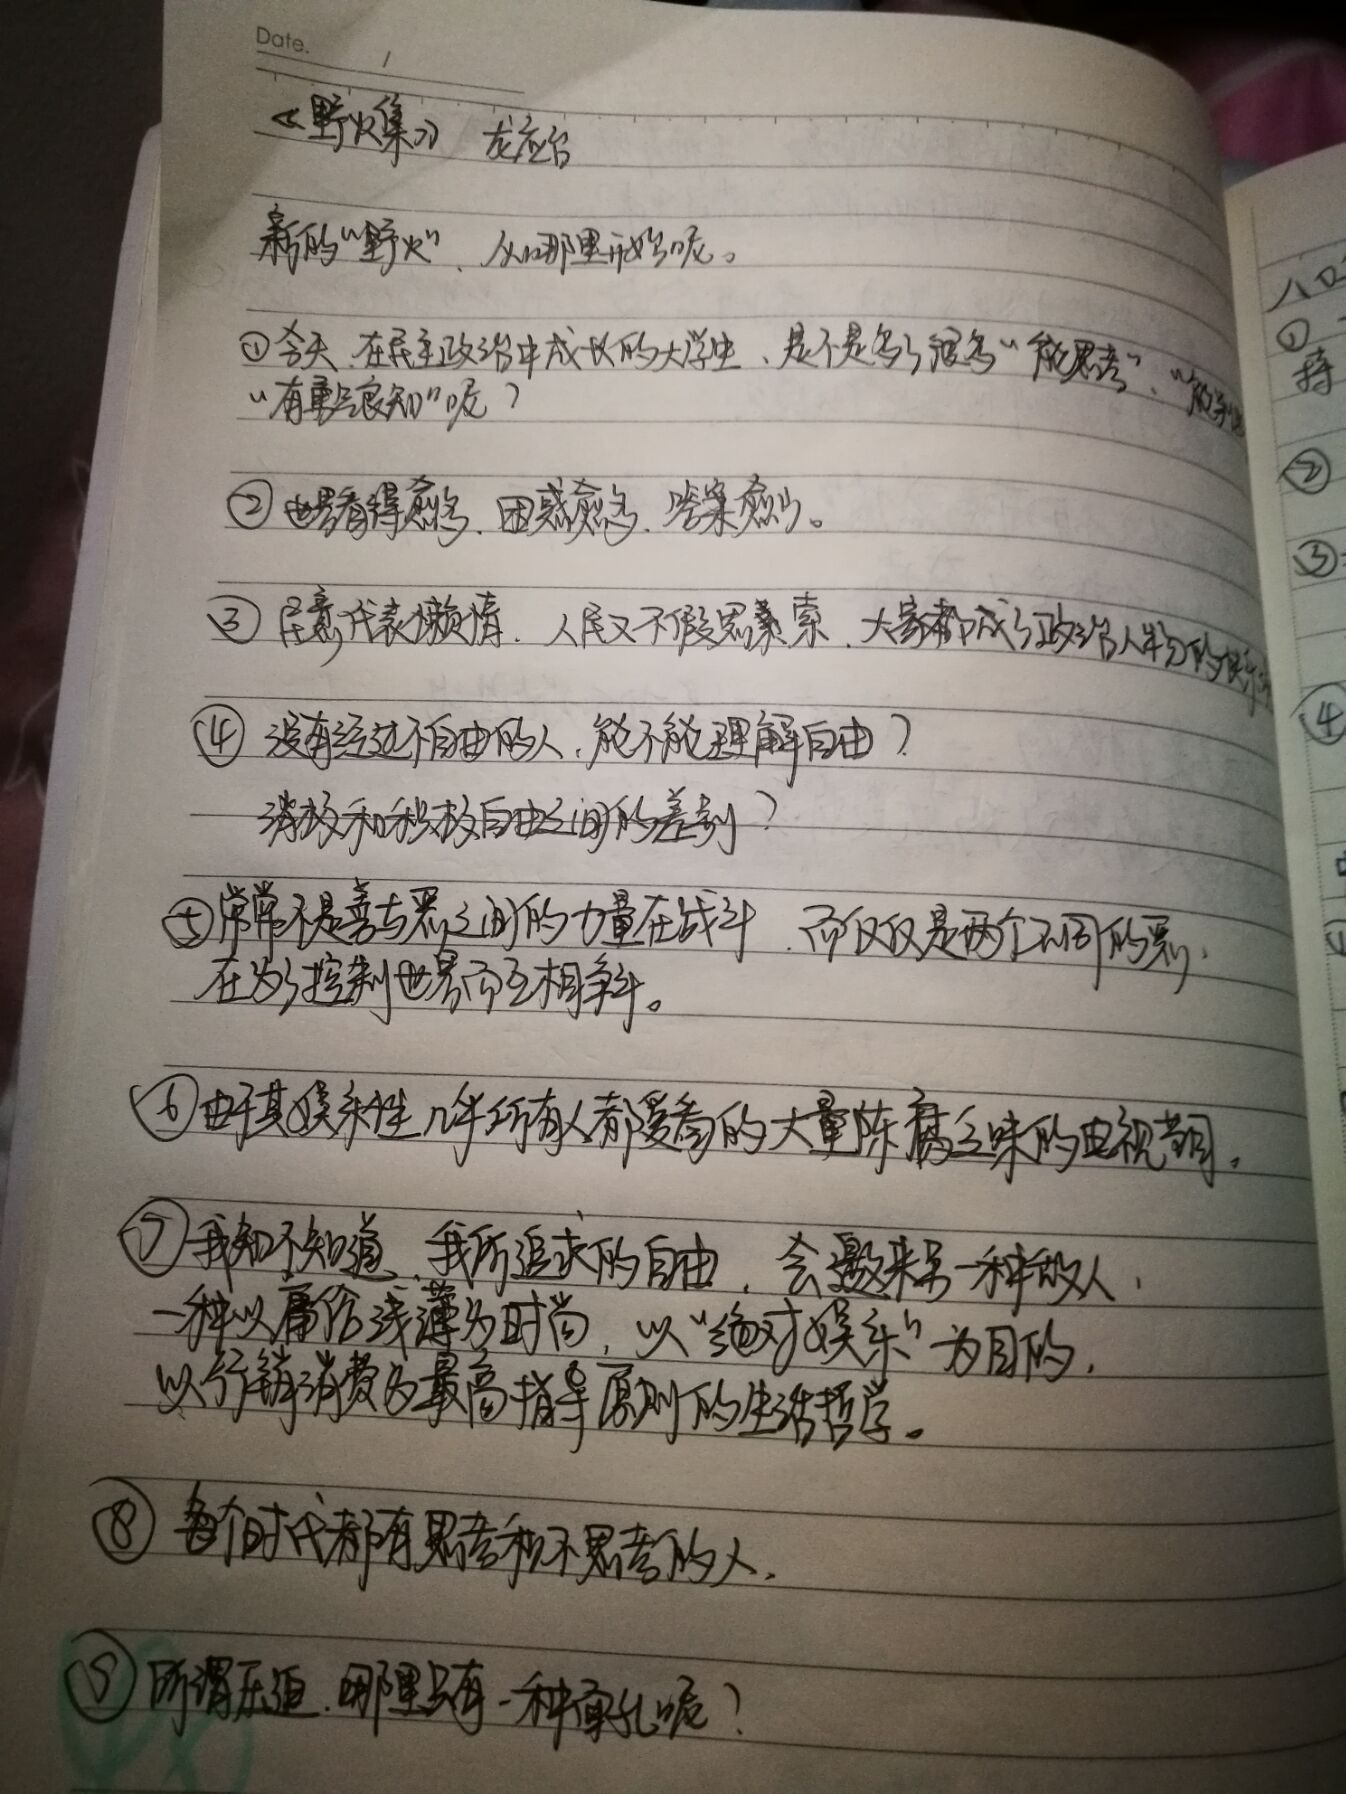 Date. /
《野火集》 龙应台
新的“野火”、从哪里开始呢。
①今天、在民主政治中成长的大学生、是不是多了很多“能思考”、“能
“有勇气良知”呢？
② 世界看得愈多、困惑愈多、答案愈少。
③ 民意代表懒惰、人民又不假思索、大家都成了政治人物的
④ 没有经过不自由的人、能不能理解自由？
消极和积极自由之间的差别？
⑤常常不是善与恶之间的力量在战斗、而仅仅是两个不同的恶、
在为了控制世界而互相争斗。
⑥由于其娱乐性几乎所有人都爱看的大量陈腐乏味的电视节目。
⑦我知不知道、我所追求的自由、会邀来另一种敌人、
一种以庸俗浅薄为时尚、以“绝对娱乐”为目的、
以行销消费为最高指导原则的生活哲学。
⑧ 每个时代都有思考和不思考的人、
⑨ 所谓压迫、哪里只有一种面孔呢？
八
①
持
②
③
④